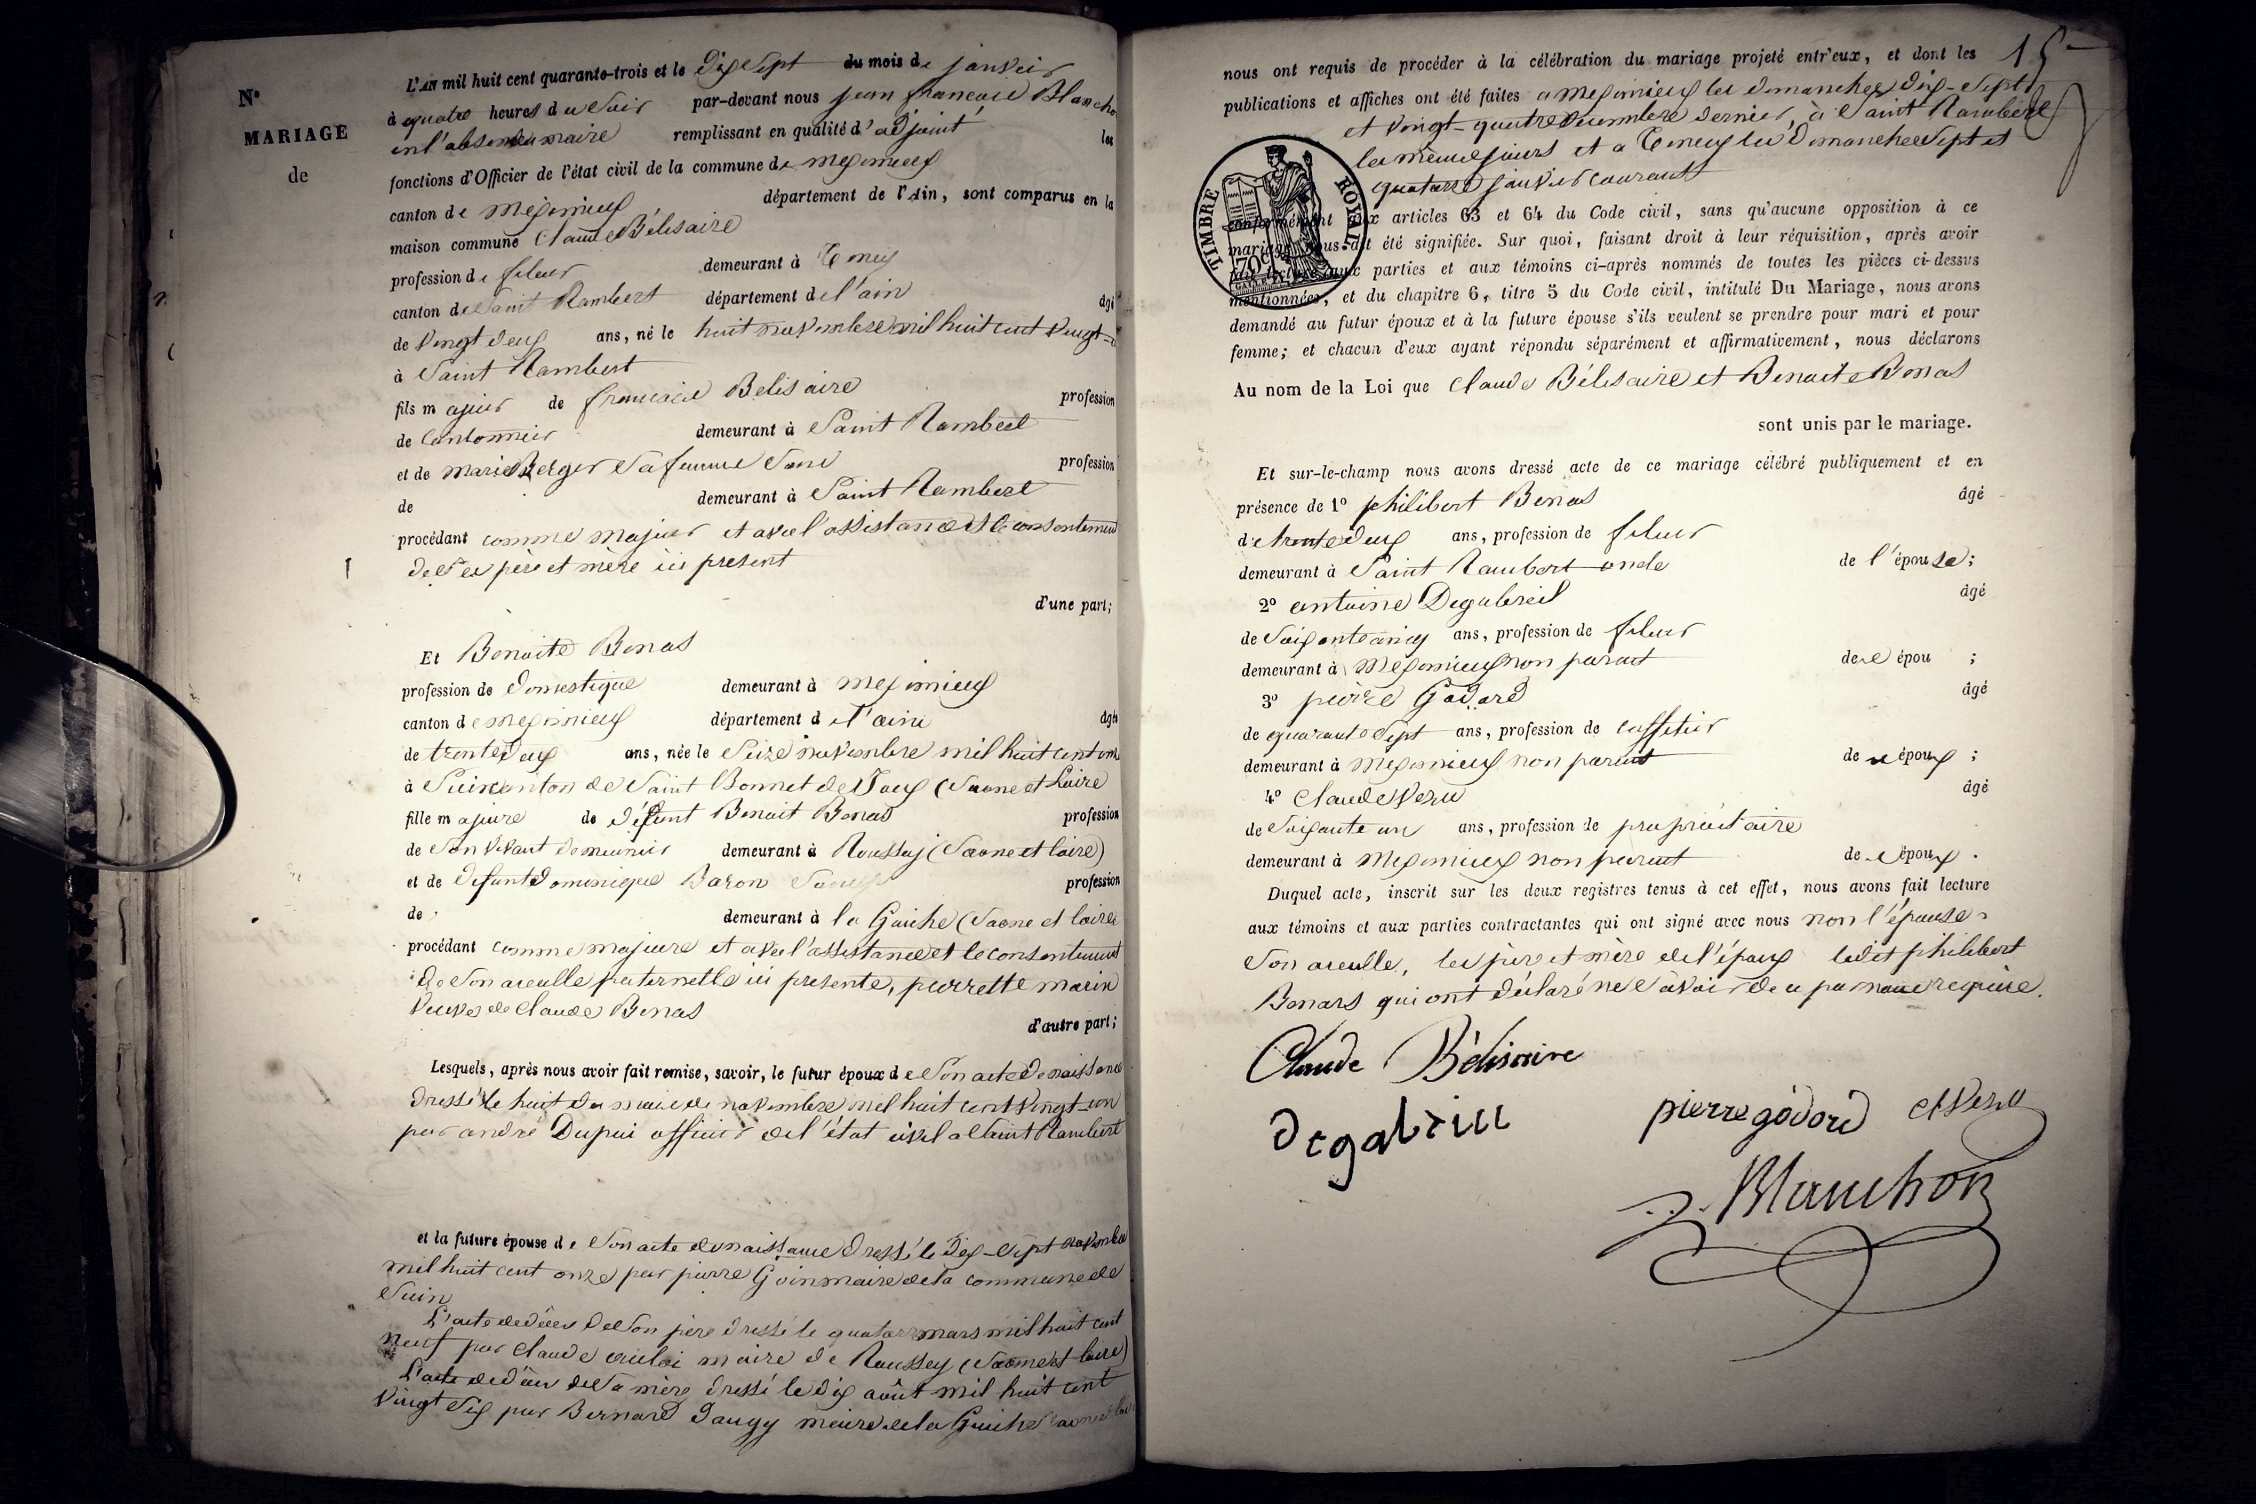 N°
MARIAGE
de
L'AN mil huit cent quarante-trois et le Dix Sept du mois de janvier
à quatre heures du Soir par-devant nous jean françois Blancho
en l'absence du maire remplissant en qualité d'adjoint les
fonctions d'Officier de l'état civil de la commune de meximieux
canton de meximieux département de l'Ain, sont comparus en la
maison commune Claude Bélisaire
profession de fileur demeurant à Teney
canton de Saint Rambert département de l'ain âgé
de vingt deux ans, né le huit novembre mil huit cent vingt
à Saint Rambert
fils majeur de françois Belisaire profession
de Cantonnier demeurant à Saint Rambert
et de marie Berger Sa femme Sans profession
de demeurant à Saint Rambert
procédant comme majeur et avec l'assistance et le consentement
de Ses père et mère ici present
d'une part;
Et Benoite Bonas
profession de domestique demeurant à meximieux
canton de meximieux département de l'ain âgée
de trente deux ans, née le Seize novembre mil huit cent onze
à Suin canton de Saint Bonnet de Joux (Saone et Loire
fille majeure de défunt Benoit Bonas profession
de Son vivant de meunier demeurant à Roussey (Saone et loire)
et de defunte dominique Baron Sans profession
de demeurant à la Guiche (Saone et loire
procédant comme majeure et avec l'assistance et le consentement
de Son aieulle paternelle ici presente, pierrette marin
veuve de Claude Bonas
d'autre part;
Lesquels, après nous avoir fait remise, savoir, le futur époux de Son acte de naissance
dressé le huit du mois de novembre mil huit cent vingt-un
par andré Dupui officier de l'état civil a Saint Rambert
et la future épouse de Son acte de naissance dressé le Dix-Sept novembre
mil huit cent onze par pierre Goin maire de la commune de
Suin
L'acte de décès de Son père dressé le quatorze mars mil huit cent
neuf par Claude maire de Roussey (Saone et loire)
L'acte de décès de Sa mère dressé le dix août mil huit cent
vingt Six par Bernard Daugy maire de la Guiche
15
nous ont requis de procéder à la célébration du mariage projeté entr'eux, et dont les
publications et affiches ont été faites a meximieux les dimanches dix-Sept
et vingt-quatre decembre dernier, à Saint Rambert
les mêmes jours et a Teney les dimanches Sept et
quatorze janvier courant
TIMBRE ROYAL
70c
conformément aux articles 63 et 64 du Code civil, sans qu'aucune opposition à ce
mariage nous ait été signifiée. Sur quoi, faisant droit à leur réquisition, après avoir
fait lecture aux parties et aux témoins ci-après nommés de toutes les pièces ci-dessus
mentionnées, et du chapitre 6, titre 5 du Code civil, intitulé Du Mariage, nous avons
demandé au futur époux et à la future épouse s'ils veulent se prendre pour mari et pour
femme; et chacun d'eux ayant répondu séparément et affirmativement, nous déclarons
Au nom de la Loi que Claude Bélisaire et Benoite Bonas
sont unis par le mariage.
Et sur-le-champ nous avons dressé acte de ce mariage célébré publiquement et en
présence de 1° philibert Bonas âgé
de trente deux ans, profession de fileur
demeurant à Saint Rambert oncle de l'épouse;
2° antoine Degabriel âgé
de Soixante cinq ans, profession de fileur
demeurant à meximieux non parent de l épou ;
3° pierre Godard âgé
de quarante Sept ans, profession de caffetier
demeurant à meximieux non parent de l époux ;
4° Claude Veru âgé
de Soixante un ans, profession de propriétaire
demeurant à meximieux non parent de l époux .
Duquel acte, inscrit sur les deux registres tenus à cet effet, nous avons fait lecture
aux témoins et aux parties contractantes qui ont signé avec nous non l'épouse
Son aieulle, les père et mère de l'époux ledit philibert
Bonars qui ont déclaré ne Savoir de ce par nous requis.
Claude Bélisaire
degabriel
pierre godord
Cl Veru
Blanchon